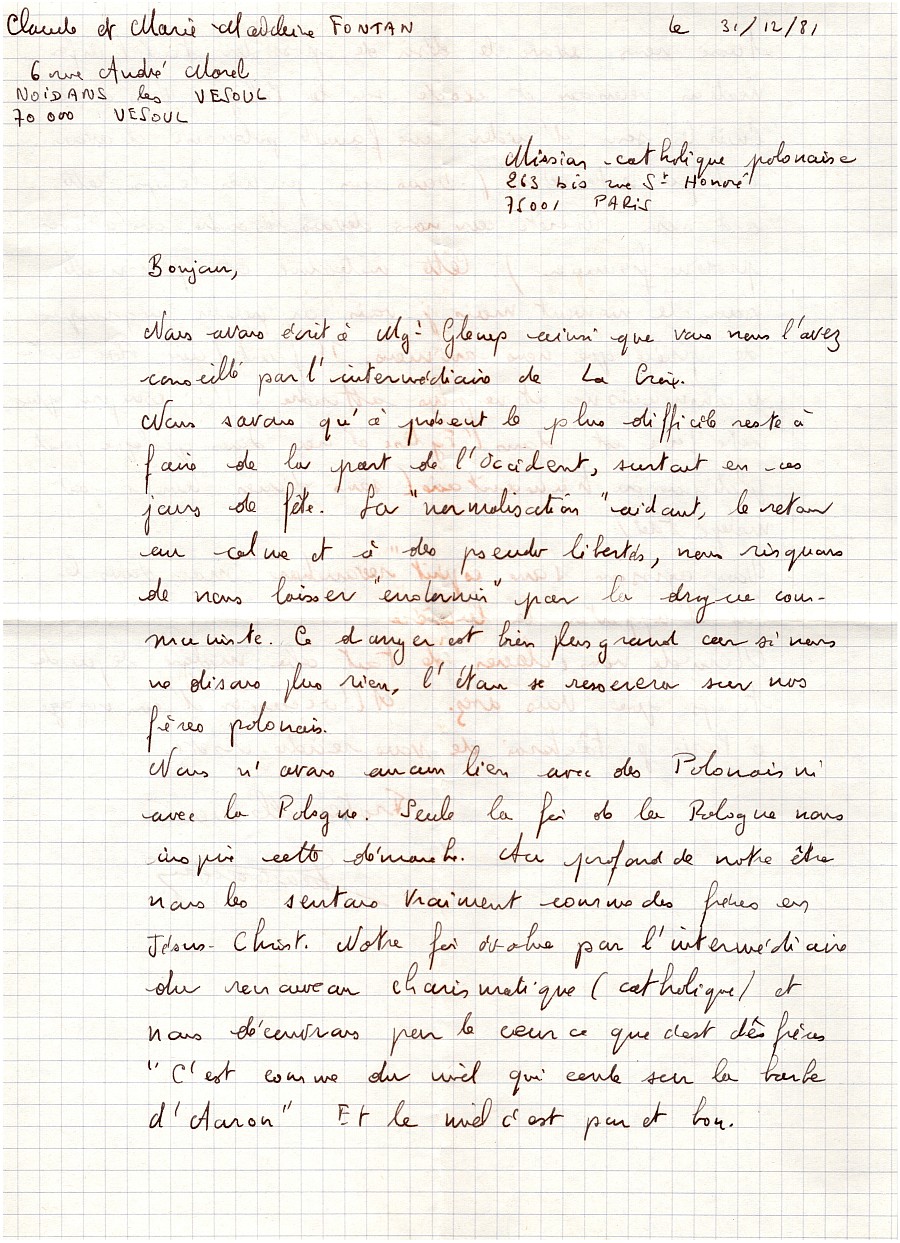 Claude et Marie Madeleine FONTAN
le 31/12/81
6 rue André Morel
NOIDANS les VESOUL
70 000 VESOUL
Mission catholique polonaise
263 bis rue St Honoré
75001 PARIS
Bonjour,
Nous avons écrit à Mgr Glemp ainsi que vous nous l'avez
conseillé par l'intermédiaire de La Croix.
Nous savons qu'à présent le plus difficile reste à
faire de la part de l'Occident, surtout en ces
jours de fête. La "normalisation" aidant, le retour
au calme et à des pseudo libertés, nous risquons
de nous laisser "endormir" par la drogue com-
muniste. Ce danger est bien plus grand car si nous
ne disons plus rien, l'étau se resserera sur nos
frères polonais.
Nous n'avons aucun lien avec des Polonais ni
avec la Pologne. Seule la foi de la Pologne nous
inspire cette démarche. Au profond de notre être
nous les sentons vraiment comme des frères en
Jésus-Christ. Notre foi évolue par l'intermédiaire
du renouveau charismatique (catholique) et
nous découvrons par le coeur ce que c'est des frères
"C'est comme du miel qui coule sur la barbe
d'Aaron" Et le miel c'est pur et bon.